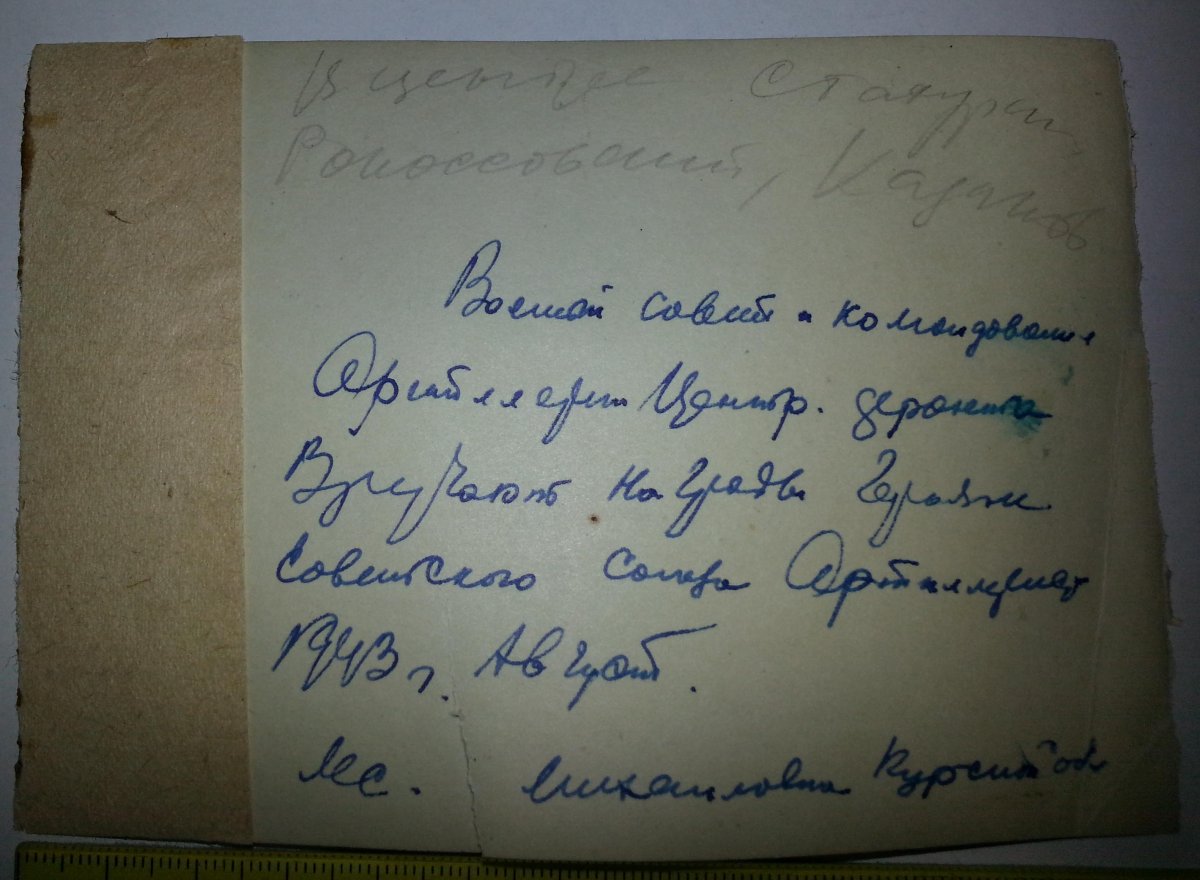 В центре Стахурский,
Рокоссовский, Казаков
Военный совет и командование
Артиллерии Центр. фронта
Вручают награды Героям
Советского Союза Артиллерист
1943 г. Август.
Мс. Михайловка Курской обл